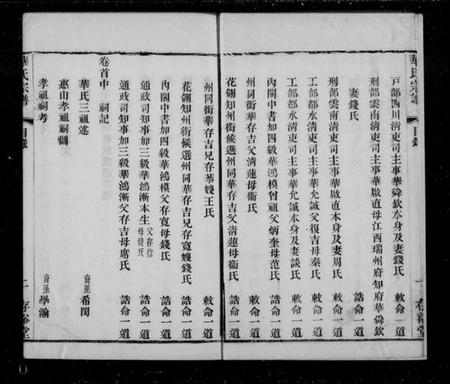 華氏宗譜
目錄
戶部四川清吏司主事華舜欽本身及妻錢氏 敕命一道
刑部雲南清吏司主事華啟直母江西瑞州府知府華舜欽
妻錢氏 敕命一道
刑部雲南清吏司主事華啟直本身及妻周氏 敕命一道
工部都水清吏司主事華允誠父復吉母秦氏 敕命一道
工部都水清吏司主事華允誠本身及妻談氏 敕命一道
內閣中書加四級華鴻模曾祖父炳奎母范氏 誥命一道
州同銜華存吉父清蓮母衞氏 誥命一道
花翎知州銜候選州同華存吉父清蓮母衞氏 誥命一道
存裕堂
州同銜華存吉兄存華嫂王氏 敕命一道
花翎知州銜候選州同華存吉兄存寬嫂錢氏 誥命一道
內閣中書加四級華鴻模父存寬母錢氏 誥命一道
通政司知事加三級華鴻漸本生父存信母錢氏 誥命一道
通政司知事加三級華鴻漸父存吉母席氏 誥命一道
卷首中 祠記
華氏三祖述 裔孫希閔
惠山孝祖祠引
孝祖祠考 裔孫學瀚
華氏宗譜
目錄
二
存裕堂